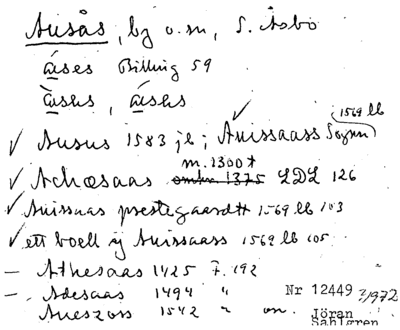 Ausås, by o. sn, S. Åsbo
åses Billing 59
åshs, åshs
1569 lb
Ausus 1583 jb; Auissaass Sognn
m. 1300 t
Achosaas omkr 1375 LDL 126
Auissaas prestegaardtt 1569 lb 103
ett boell ij Auissaass 1569 lb 105
— Athesaas 1425 F. 192
— Adesaas 1494 " Nr 12449 2/972
Aueszoss 1542 " on. Jöran
Sahlgren